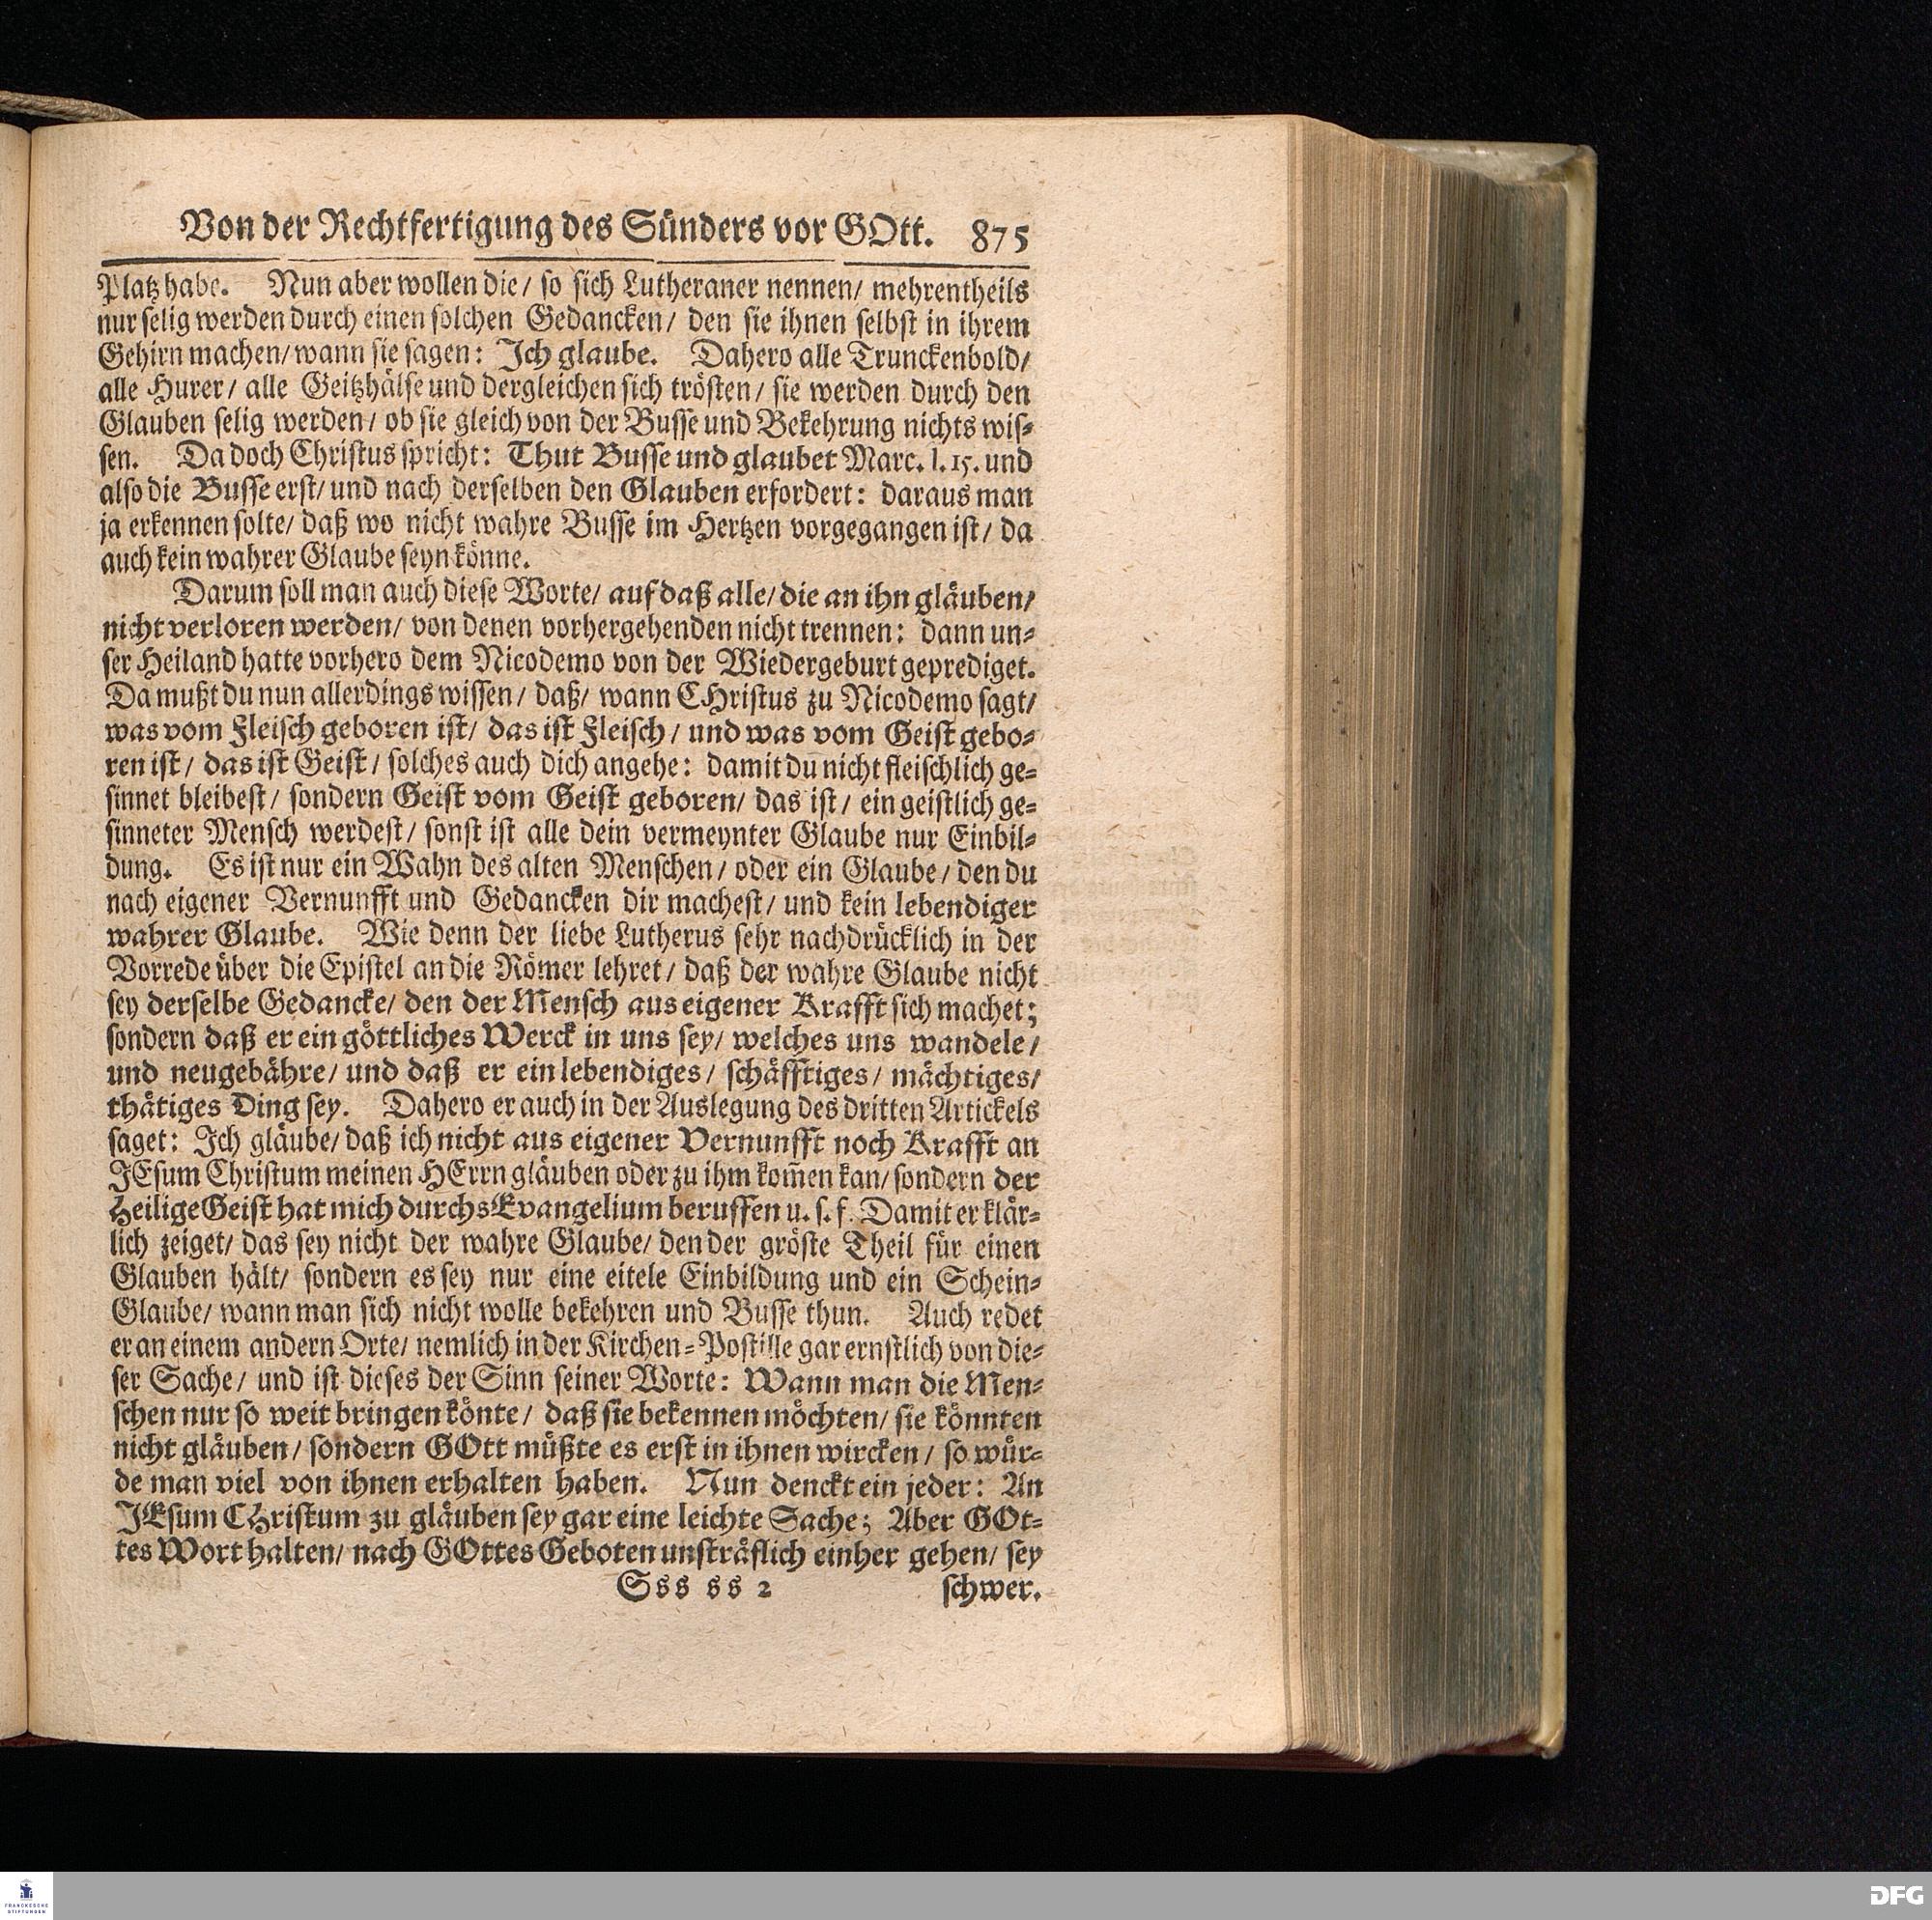 Von der Rechtfertigung des Sünders vor GOtt. 875
Platz habe. Nun aber wollen die/ so sich Lutheraner nennen/ mehrentheils
nur selig werden durch einen solchen Gedancken/ den sie ihnen selbst in ihrem
Gehirn machen/ wann sie sagen: Ich glaube. Dahero alle Trunckenbold/
alle Hurer/ alle Geitzhälse und dergleichen sich trösten/ sie werden durch den
Glauben selig werden/ ob sie gleich von der Busse und Bekehrung nichts wis-
sen. Da doch Christus spricht: Thut Busse und glaubet Marc. 1. 15. und
also die Busse erst/ und nach derselben den Glauben erfordert: daraus man
ja erkennen solte/ daß wo nicht wahre Busse im Hertzen vorgegangen ist/ da
auch kein wahrer Glaube seyn könne.
Darum soll man auch diese Worte/ auf daß alle/ die an ihn gläuben/
nicht verloren werden/ von denen vorhergehenden nicht trennen: dann un-
ser Heiland hatte vorhero dem Nicodemo von der Wiedergeburt geprediget.
Da mußt du nun allerdings wissen/ daß/ wann CHristus zu Nicodemo sagt/
was vom Fleisch geboren ist/ das ist Fleisch/ und was vom Geist gebo-
ren ist/ das ist Geist/ solches auch dich angehe: damit du nicht fleischlich ge-
sinnet bleibest/ sondern Geist vom Geist geboren/ das ist/ ein geistlich ge-
sinneter Mensch werdest/ sonst ist alle dein vermeynter Glaube nur Einbil-
dung. Es ist nur ein Wahn des alten Menschen/ oder ein Glaube/ den du
nach eigener Vernunfft und Gedancken dir machest/ und kein lebendiger
wahrer Glaube. Wie denn der liebe Lutherus sehr nachdrücklich in der
Vorrede über die Epistel an die Römer lehret/ daß der wahre Glaube nicht
sey derselbe Gedancke/ den der Mensch aus eigener Krafft sich machet;
sondern daß er ein göttliches Werck in uns sey/ welches uns wandele/
und neugebähre/ und daß er ein lebendiges/ schäfftiges/ mächtiges/
thätiges Ding sey. Dahero er auch in der Auslegung des dritten Artickels
saget: Ich gläube/ daß ich nicht aus eigener Vernunfft noch Krafft an
JEsum Christum meinen HErrn gläuben oder zu ihm kom̃en kan/ sondern der
Heilige Geist hat mich durchs Evangelium beruffen u. s. f. Damit er klär-
lich zeiget/ das sey nicht der wahre Glaube/ den der gröste Theil für einen
Glauben hält/ sondern es sey nur eine eitele Einbildung und ein Schein-
Glaube/ wann man sich nicht wolle bekehren und Busse thun. Auch redet
er an einem andern Orte/ nemlich in der Kirchen-Postille gar ernstlich von die-
ser Sache/ und ist dieses der Sinn seiner Worte: Wann man die Men-
schen nur so weit bringen könte/ daß sie bekennen möchten/ sie könnten
nicht gläuben/ sondern GOtt müßte es erst in ihnen wircken/ so wür-
de man viel von ihnen erhalten haben. Nun denckt ein jeder: An
JEsum CHristum zu gläuben sey gar eine leichte Sache; Aber GOt-
tes Wort halten/ nach GOttes Geboten unsträflich einher gehen/ sey
Sss ss 2 schwer.
FRANCKESCHE
STIFTUNGEN
DFG